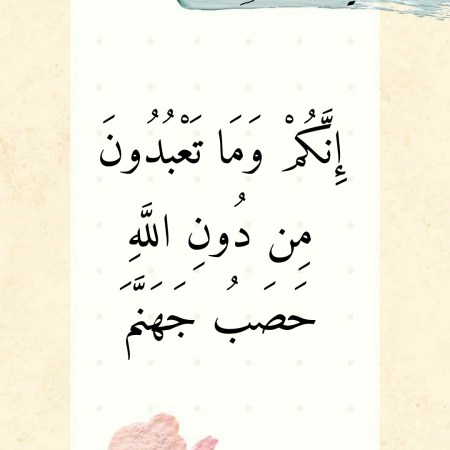 إِنَّكُمْ وَمَا تَعْبُدُونَ
مِن دُونِ اللَّهِ
حَصَبُ جَهَنَّمَ